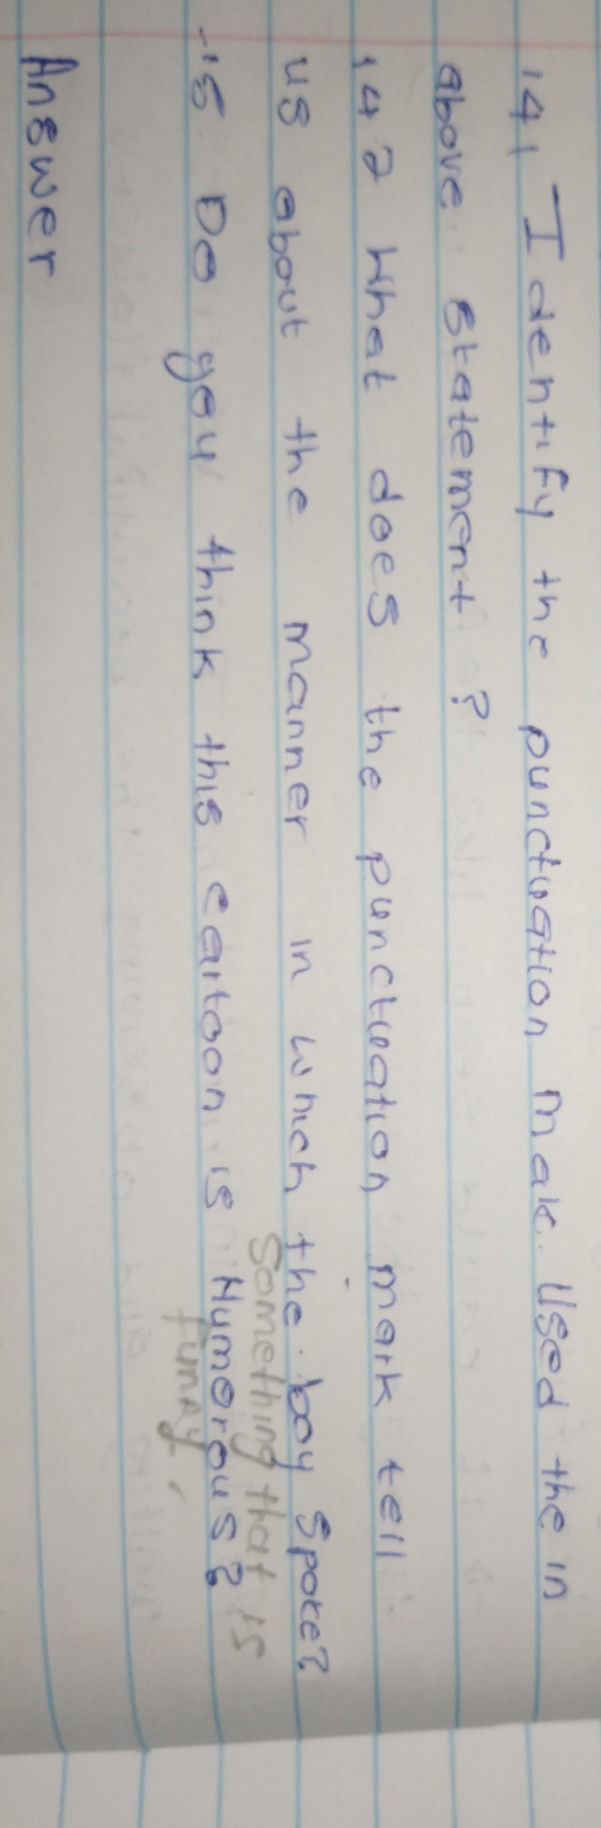 14, Identify the punctuation mak Used the in
above statement ?
142 What does the punctuation mark tell
us about the manner in which the boy Spoke?
15. Do you think this cartoon is Humorous?
Something that is
funny,
Answer